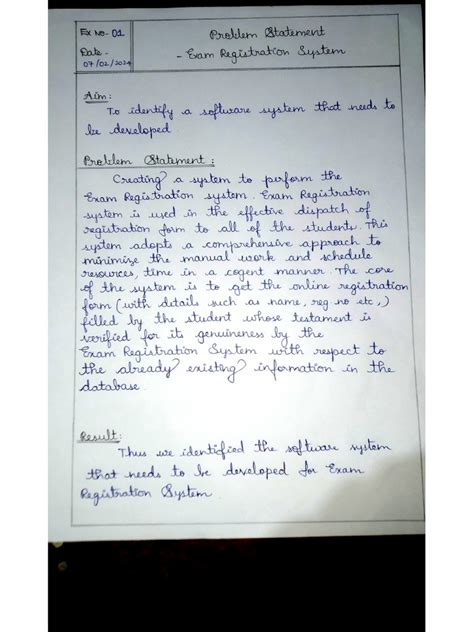 Ex No- 01
Date-
07/02/2024
Problem Statement
- Exam Registration System
Aim:
To identify a software system that needs to
be developed
Problem Statement:
Creating a system to perform the
Exam Registration system. Exam Registration
system is used in the effective dispatch of
registration form to all of the students. This
system adopts a comprehensive approach to
minimize the manual work and schedule
resources, time in a cogent manner. The core
of the system is to get the online registration
form (with details such as name, reg no etc,)
filled by the student whose testament is
verified for its genuineness by the
Exam Registration System with respect to
the already existing information in the
database.
Result:
Thus we identified the software system
that needs to be developed for Exam
Registration System.